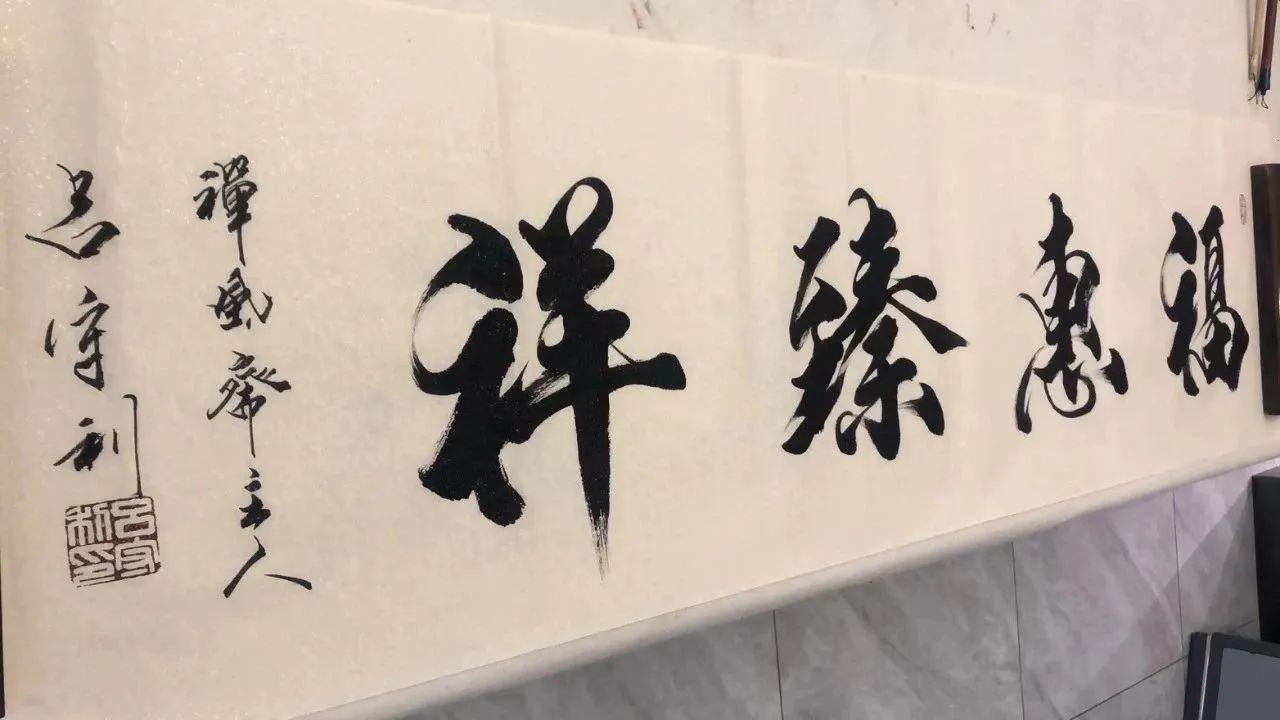 福惠臻祥
禪風齋主人
呂守利
呂守利印